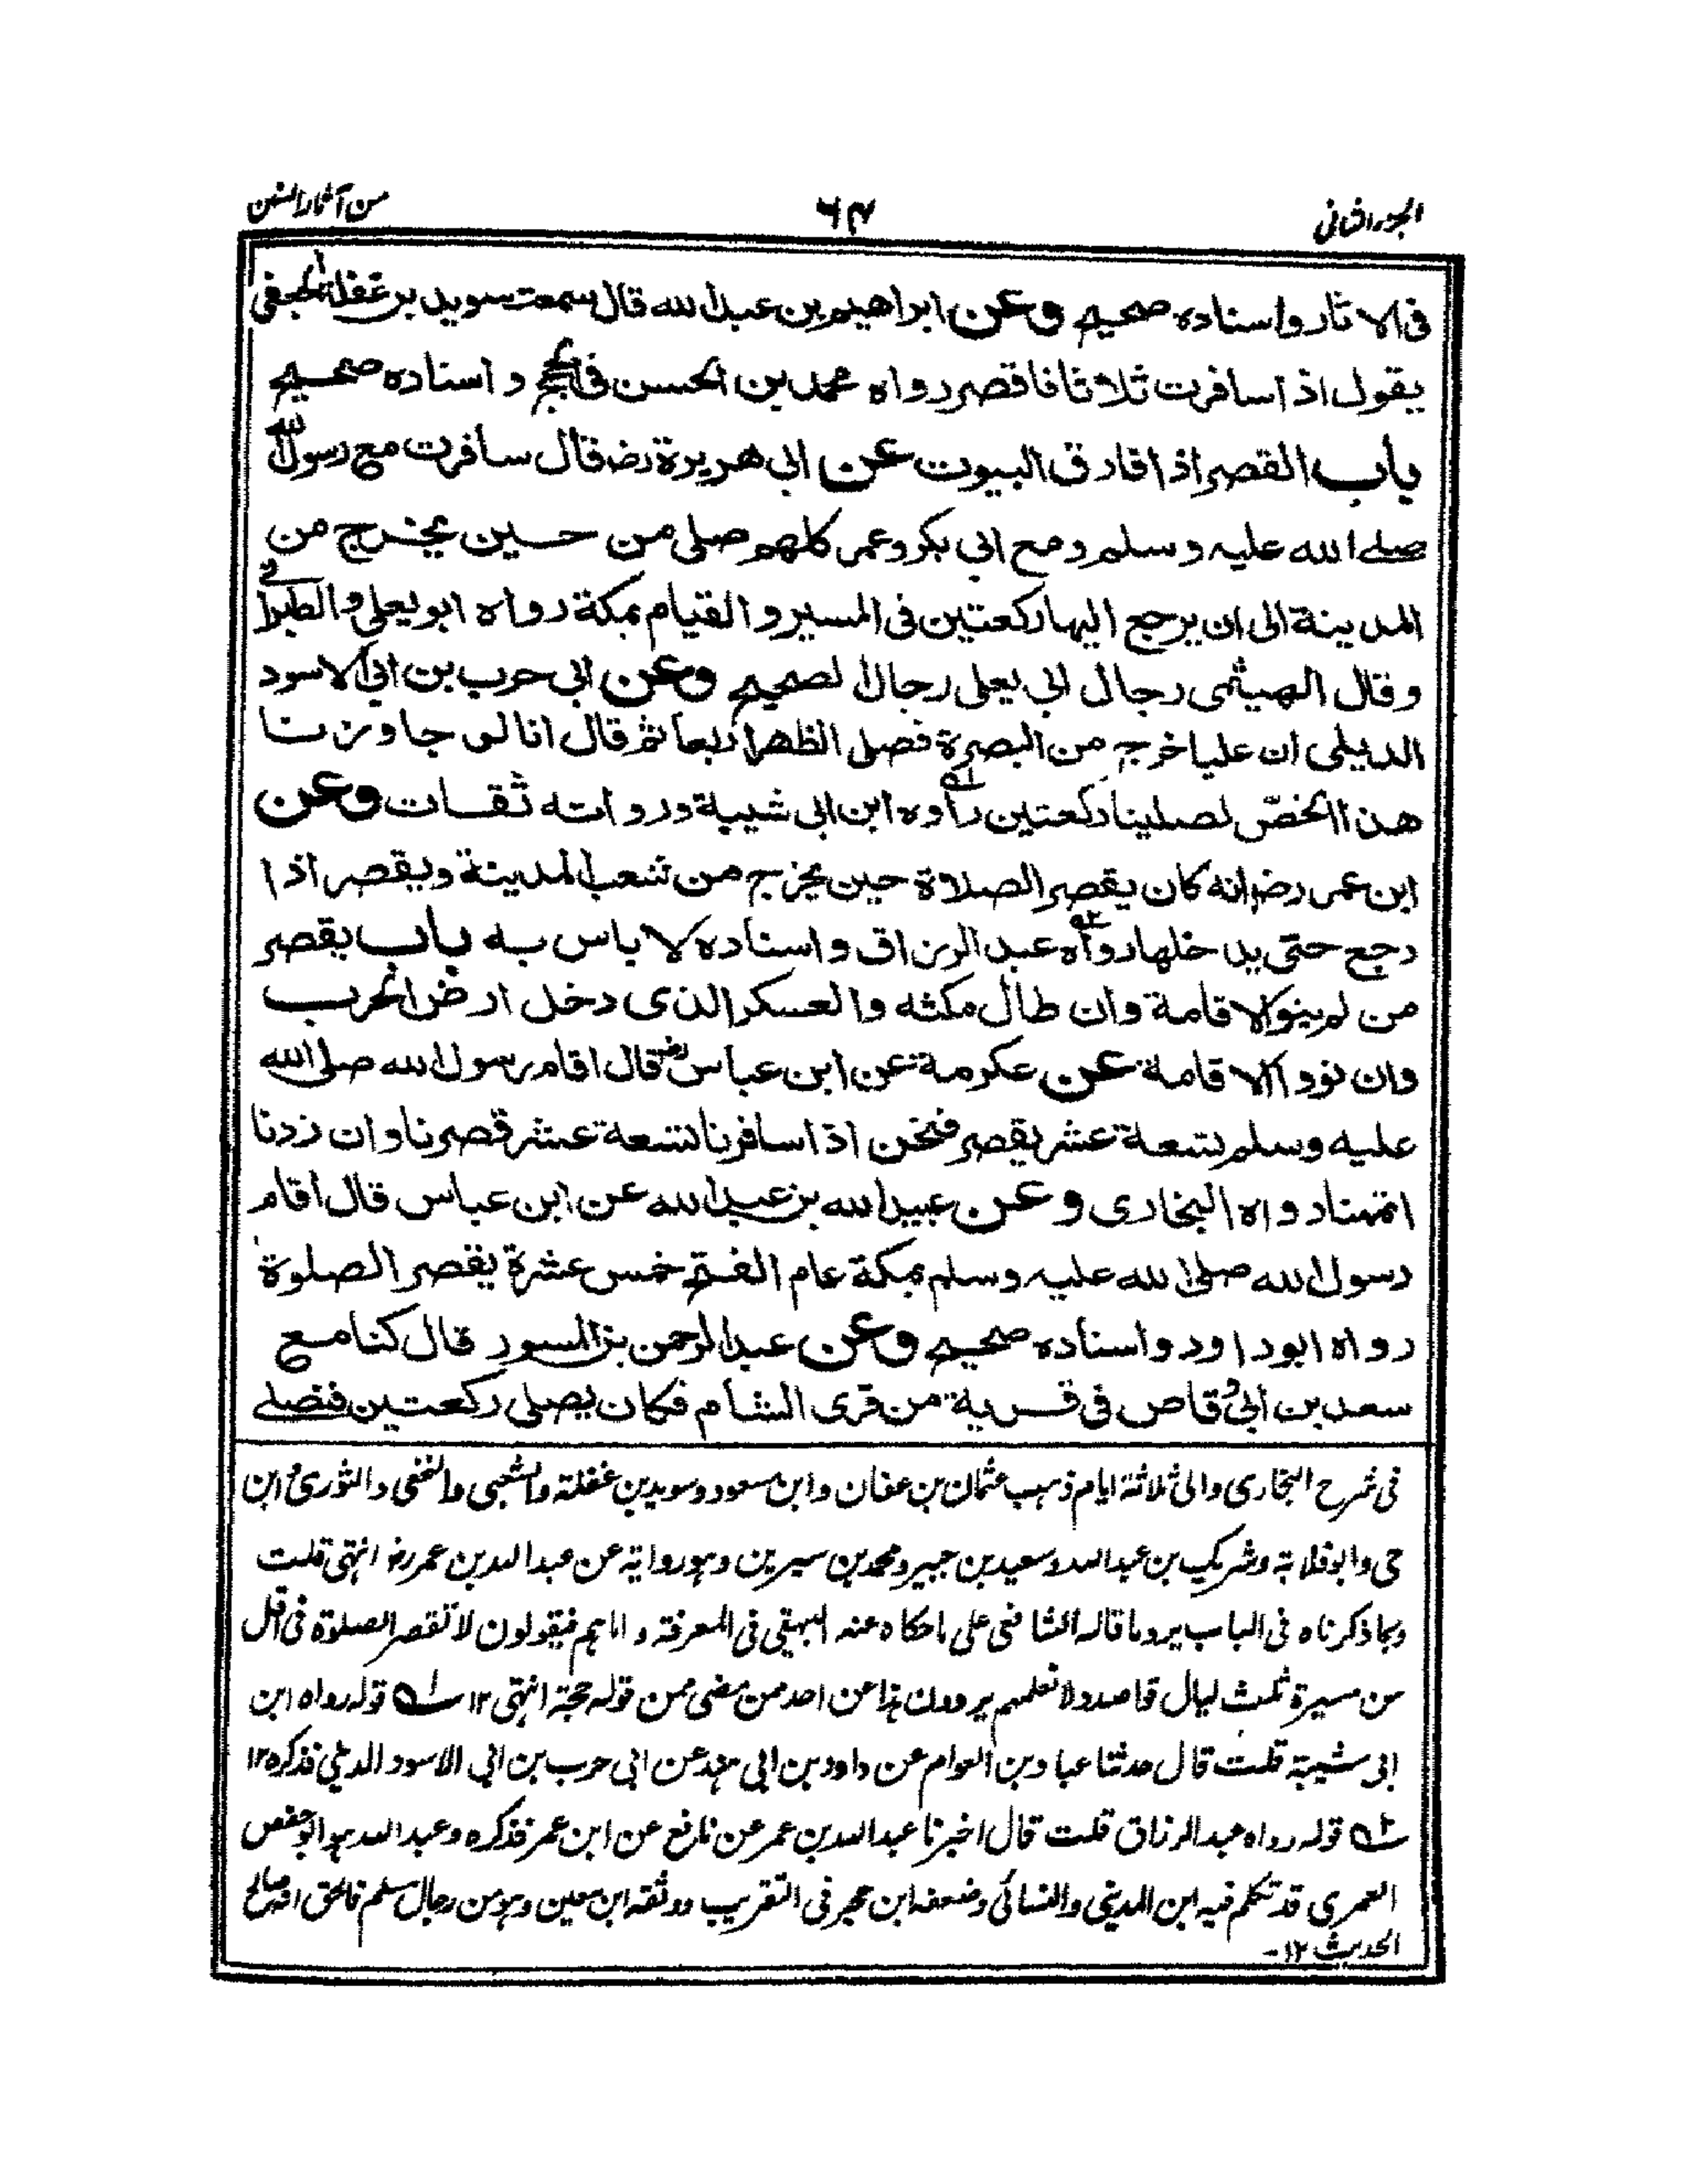 الجزء الثانی ٦٤ من آثار السنن
فی الاثار واسناده صحیح وعن ابراهیم بن عبد الله قال سمعت سوید بن غفلة الجعفی
یقول اذا سافرت ثلاثا فاقصر رواه محمد بن الحسن فی الحجج و اسناده صحیح
باب القصر اذا فارق البیوت عن ابی هریرة رضـ قال سافرت مع رسول الله
صلے الله علیه وسلم ومع ابی بکر وعمر کلهم صلی من حین یخرج من
المدینة الی ان یرجع الیها رکعتین فی المسیر و القیام بمکة رواه ابو یعلی والطبرانی
وقال الهیثمی رجال ابی یعلی رجال الصحیح وعن ابی حرب بن ابی الاسود
الدیلی ان علیا خرج من البصرة فصلی الظهر اربعا ثم قال انا لو جاوزنا
هذا الخصّ لصلینا رکعتین رواه ابن ابی شیبة ورواته ثقات وعن
ابن عمر رضـ انه کان یقصر الصلاة حین یخرج من شعب المدینة ویقصر اذا
رجع حتی یدخلها رواه عبد الرزاق واسناده لا باس به باب یقصر
من لم ینو الاقامة وان طال مکثه والعسکر الذی دخل ارض الحرب
وان نووا الاقامة عن عکرمة عن ابن عباس رضـ قال اقام رسول الله صلی الله
علیه وسلم تسعة عشر یقصر فنحن اذا سافرنا تسعة عشر قصرنا وان زدنا
اتممنا رواه البخاری وعن عبید الله بن عبد الله عن ابن عباس قال اقام
رسول الله صلی الله علیه وسلم بمکة عام الفتح خمس عشرة یقصر الصلوة
رواه ابو داود واسناده صحیح وعن عبد الرحمن بن المسور قال کنا مع
سعد بن ابی وقاص فی قریة من قری الشام فکان یصلی رکعتین فنصلے
فی شرح البخاری والی ثلاثة ایام ذهب عثمان بن عفان وابن مسعود وسوید بن غفلة والشعبی والنخعی والثوری وابن
حی وابو قلابة وشریک بن عبد الله وسعید بن جبیر ومحمد بن سیرین وهو روایة عن عبد الله بن عمر رضـ انتهی قلت
وبما ذکرناه فی الباب یرد ما قاله الشافعی علی ما حکاه عنه البیهقی فی المعرفة واما هم فیقولون لا تقصر الصلوة فی اقل
من مسیرة ثلث لیال قاصد ولا نعلمهم یروون هذا عن احد ممن مضی ممن قوله حجة انتهی ١٢ ؂١ قوله رواه ابن
ابی شیبة قلت قال حدثنا عباد بن العوام عن داود بن ابی هند عن ابی حرب بن ابی الاسود الدیلی فذکره ١٢
؂٢ قوله رواه عبد الرزاق قلت قال اخبرنا عبد الله بن عمر عن نافع عن ابن عمر فذکره وعبد الله هو ابو حفص
العمری قد تکلم فیه ابن المدینی والنسائی وضعفه ابن حجر فی التقریب ووثقه ابن معین وهو من رجال مسلم فالحق انه صالح
الحدیث ١٢-